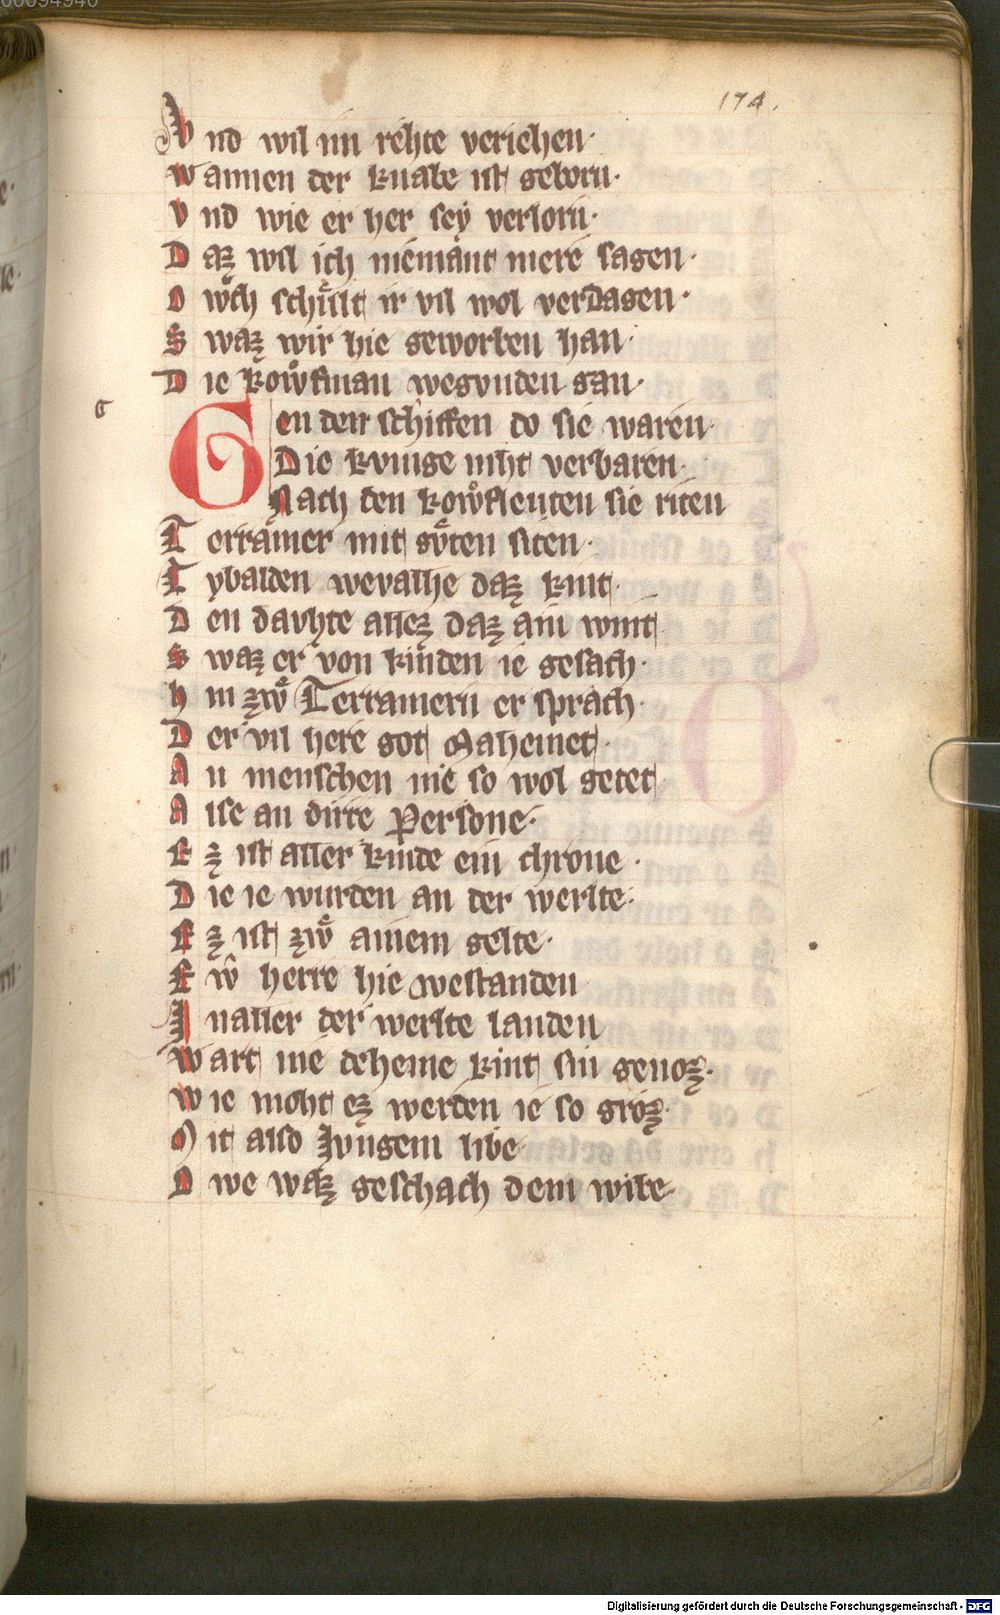 174.
Vnd wil im rehte veriehen·
Wannen der knabe ist geborn·
Vnd wie er her sey verlorn·
Daz wil ich niemant mere sagen·
Owch schuͤlt ir vil wol verdagen·
Swaz wir hie geworben han·
Die kowͤfman wegvnden gan·
g
Gen den schiffen do sie waren·
Die kvnige niht verbaren·
Nach den kowͤflevten sie riten
Terramer mit gvͤten siten·
Tybalden wevalhe daz kint·
Den davhte allez daz ain wint
Swaz er von kinden ie gesach·
Hin zwͤ Terramern er sprach·
Der vil here got Mahemet·
An menschen nie so wol getet
Alse an dirre Persone·
Ez ist aller kinde ein chrone·
Die ie wurden an der werlte·
Ez ist zwͤ ainem gelte·
Ew herre hie westanden
In aller der werlte landen
Wart nie deheine kint sin genoz·
Wie moht ez werden ie so groz·
Mit also Jvngem libe·
Owe waz geschach dem wibe·
Digitalisierung gefördert durch die Deutsche Forschungsgemeinschaft - DFG